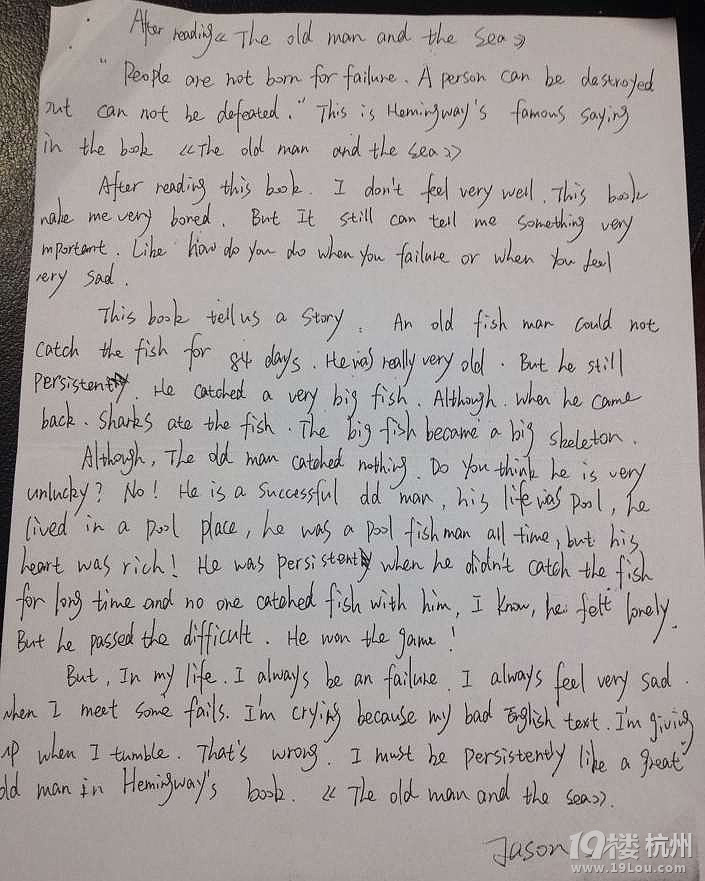 After reading《The old man and the Sea》
"People are not born for failure. A person can be destroyed
but can not be defeated." This is Hemingway's famous saying
in the book 《The old man and the sea》
After reading this book. I don't feel very well. This book
make me very bored. But It still can tell me something very
mportant. Like how do you do when you failure or when you feel
very sad.
This book tell us a story. An old fish man could not
catch the fish for 84 days. He was really very old. But he still
persistent. He catched a very big fish. Although. when he came
back. sharks ate the fish. The big fish became a big skeleton.
Although, The old man catched nothing. Do you think he is very
unlucky? No! He is a successful old man, his life was pool, he
lived in a pool place, he was a pool fishman all time, but his
heart was rich! He was persistent when he didn't catch the fish
for long time and no one catched fish with him, I know, he felt lonely.
But he passed the difficult. He won the game!
But, In my life. I always be an failure. I always feel very sad.
when I meet some fails. I'm crying because my bad English text. I'm giving
up when I tumble. That's wrong. I must be persistently like a great
old man in Hemingway's book. 《The old man and the sea》.
Jason
19楼 杭州
www.19Lou.com